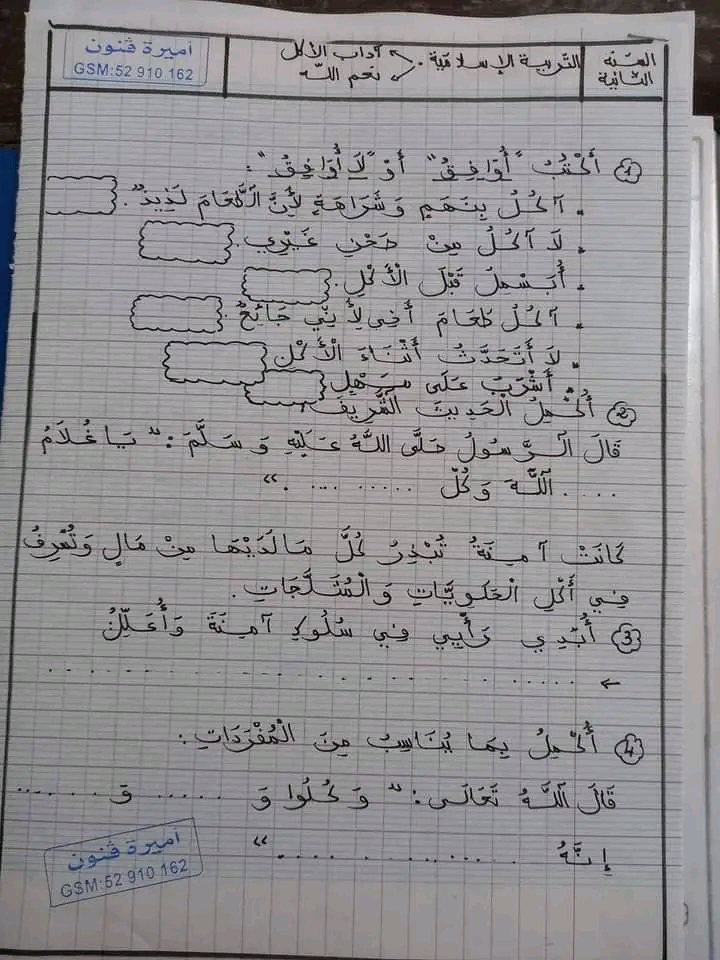 السنة الثانية
التربية الإسلامية
آداب الأكل
نعم الله
أميرة ڨنون
GSM:52 910 162
1 أَكْتُبُ "أُوَافِقُ" أَوْ "لَا أُوَافِقُ":
. آكُلُ بِنَهَمٍ وَشَرَاهَةٍ لِأَنَّ الطَّعَامَ لَذِيذٌ.
. لَا آكُلُ مِنْ صَحْنِ غَيْرِي.
. أُبَسْمِلُ قَبْلَ الْأَكْلِ.
. آكُلُ طَعَامَ أَخِي لِأَنِّي جَائِعٌ.
. لَا أَتَحَدَّثُ أَثْنَاءَ الْأَكْلِ
. أَشْرَبُ عَلَى مَهَلٍ
2 أُكْمِلُ الْحَدِيثَ الشَّرِيفَ
قَالَ الرَّسُولُ صَلَّى اللَّهُ عَلَيْهِ وَسَلَّمَ: "يَا غُلَامُ
.... اللَّهَ وَكُلْ ..... ... ."
كَانَتْ آمِنَةُ تُبَذِّرُ كُلَّ مَا لَدَيْهَا مِنْ مَالٍ وَتُسْرِفُ
فِي أَكْلِ الْحَلَوِيَّاتِ وَالْمُثَلَّجَاتِ.
3 أُبْدِي رَأْيِي فِي سُلُوكِ آمِنَةَ وَأُعَلِّلُ
← ..............................
4 أُكْمِلُ بِمَا يُنَاسِبُ مِنَ الْمُفْرَدَاتِ:
قَالَ اللَّهُ تَعَالَى: "وَكُلُوا وَ ...... وَ ......
إِنَّهُ .............."
أميرة ڨنون
GSM:52 910 162